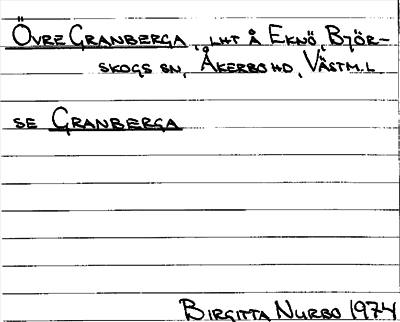 Övre Granberga, lht å Eknö, Björ-
skogs sn, Åkerbo hd, Västm.l
se Granberga
Birgitta Nurbo 1974